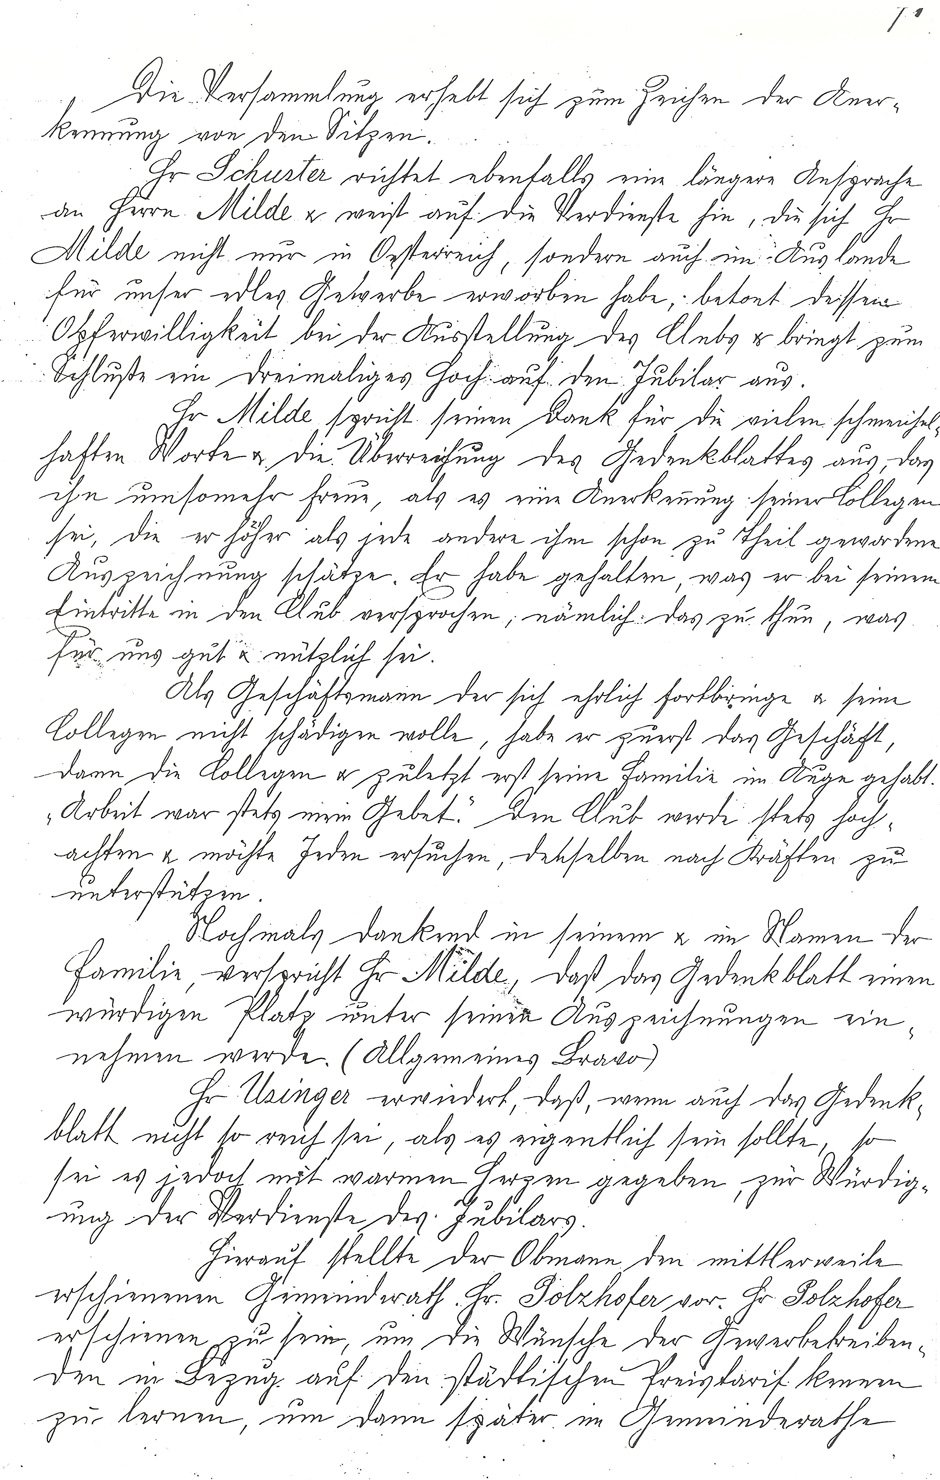 Die Versammlung erhebt sich zum Zeichen der Aner-
kennung von den Sitzen.
Hr Schuster richtet ebenfalls eine längere Ansprache
an Herrn Milde & weist auf die Verdienste hin, die sich Hr
Milde nicht nur in Oesterreich, sondern auch im Auslande
für unser edles Gewerbe erworben habe, betont dessen
Opferwilligkeit bei der Ausstellung des Clubs & bringt zum
Schluße ein dreimaliges Hoch auf den Jubilar aus.
Hr Milde spricht seinen Dank für die vielen schmeichel-
haften Worte & die Überreichung des Gedenkblattes aus, das
ihn umsomehr freue, als es eine Anerkennung seiner Collegen
sei, die er höher als jede andere ihm schon zu Theil gewordene
Auszeichnung schätze. Er habe gehalten, was er bei seinem
Eintritte in den Club versprochen, nämlich: das zu thun, was
für uns gut & nützlich sei.
Als Geschäftsmann der sich ehrlich fortbringe & seine
Collegen nicht schädigen wolle, habe er zuerst das Geschäft,
dann die Collegen & zuletzt erst seine Familie im Auge gehabt.
„Arbeit war stets mein Gebet." Den Club werde stets hoch-
achten & möchte Jeden ersuchen, denselben nach Kräften zu
unterstützen.
Nochmals dankend in seinem & im Namen der
Familie, verspricht Hr Milde, daß das Gedenkblatt einen
würdigen Platz unter seinen Auszeichnungen ein-
nehmen werde. (Allgemeines Bravo)
Hr Usinger erwiedert, daß, wenn auch das Gedenk-
blatt nicht so reich sei, als es eigentlich sein sollte, so
sei es jedoch mit warmen Herzen gegeben, zur Würdig-
ung der Verdienste des Jubilars.
Hierauf stellte der Obmann den mittlerweile
erschienenen Gemeinderath Hr. Polzhofer vor. Hr Polzhofer
erschienen zu sein, um die Wünsche der Gewerbetreiben-
den in Bezug auf den städtischen Preistarif kennen
zu lernen, um dann später im Gemeinderathe